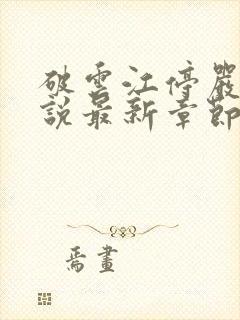 破雲江停嚴
說最新章節
焉畫